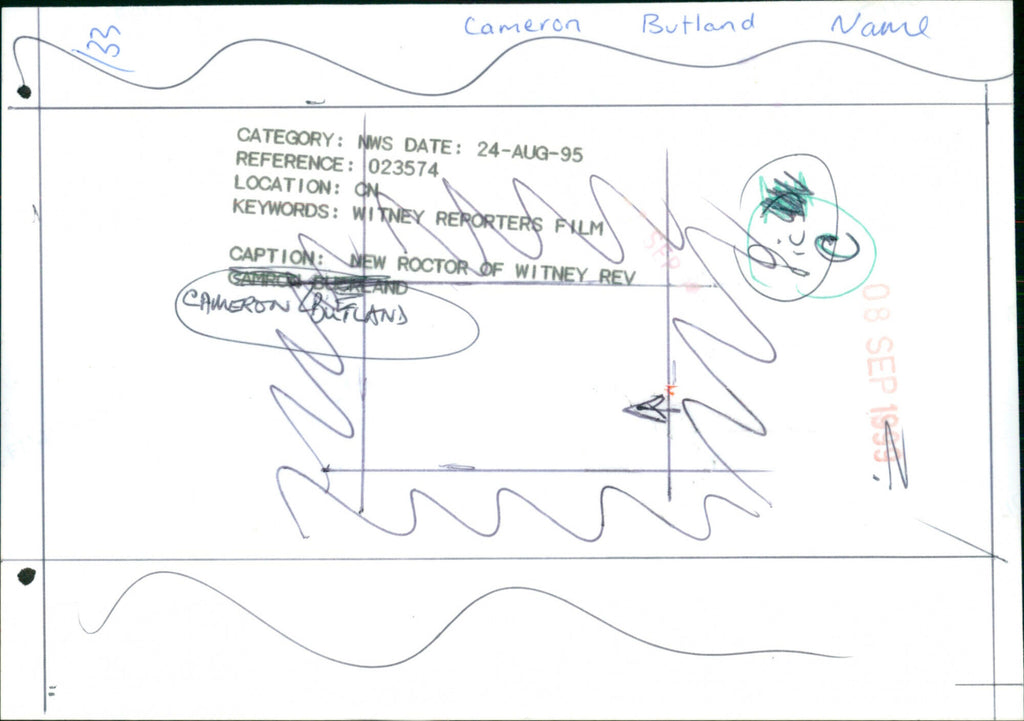 Cameron Butland Name
133
CATEGORY: NWS DATE: 24-AUG-95
REFERENCE: 023574
LOCATION: CN
KEYWORDS: WITNEY REPORTERS FILM
CAPTION: NEW ROCTOR OF WITNEY REV
CAMERON BUTLAND
SEP
P.C
C
08 SEP 1999